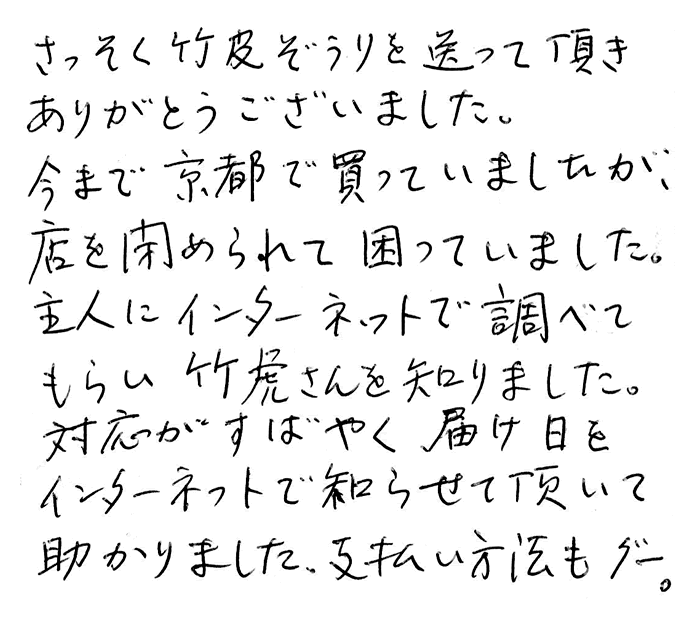 さっそく竹皮ぞうりを送って頂き
ありがとうございました。
今まで京都で買っていましたが、
店を閉められて困っていました。
主人にインターネットで調べて
もらい竹虎さんを知りました。
対応がすばやく届け日を
インターネットで知らせて頂いて
助かりました、支払い方法もグー。